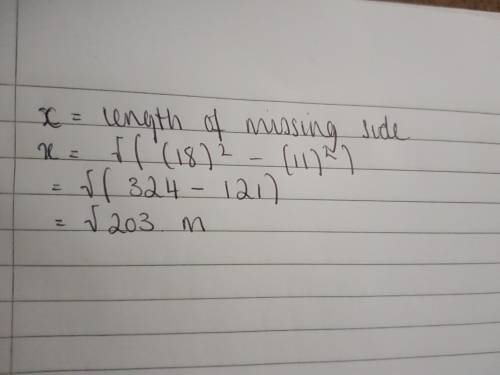 x = length of missing side
x = √( (18)² - (11)²)
= √( 324 - 121)
= √203 m